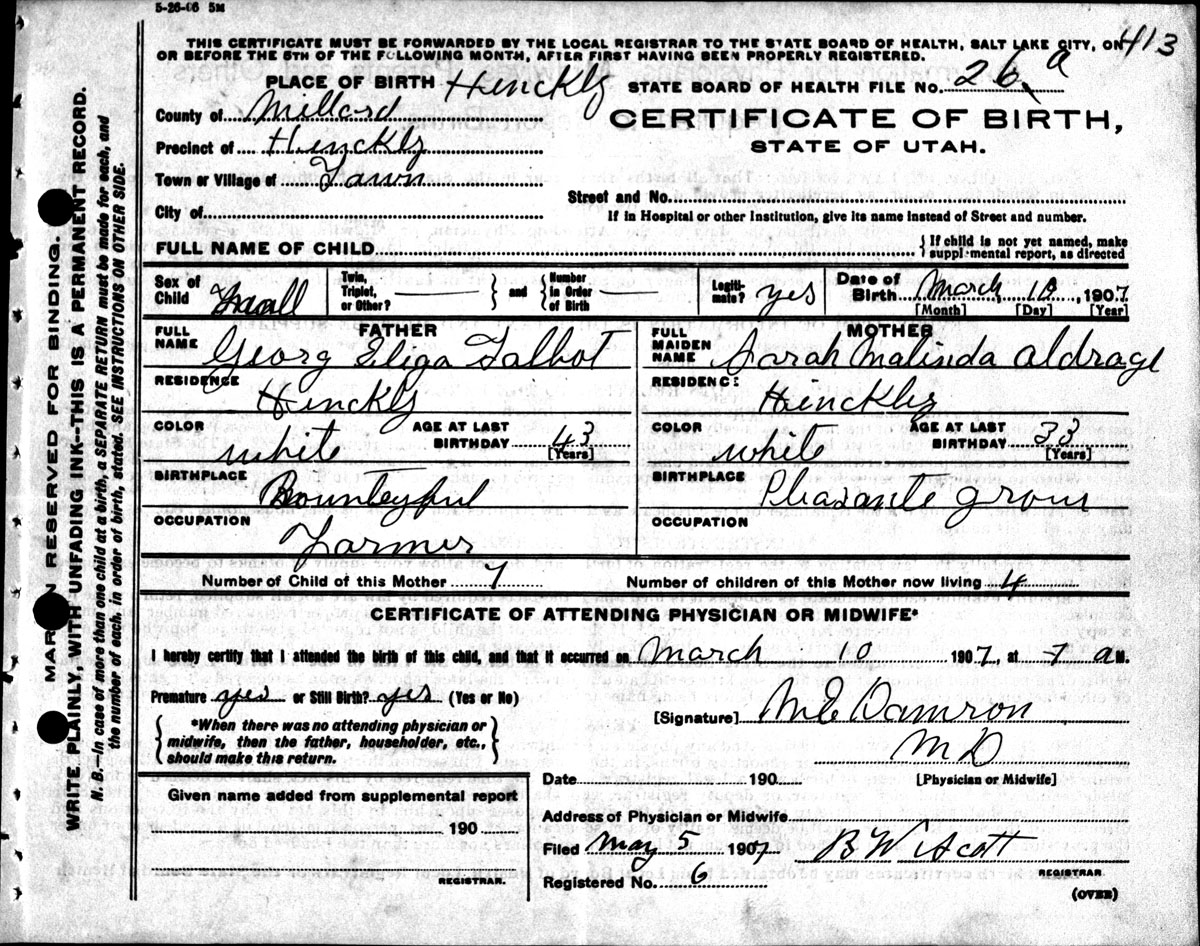 5-26-06 5M
413
THIS CERTIFICATE MUST BE FORWARDED BY THE LOCAL REGISTRAR TO THE STATE BOARD OF HEALTH, SALT LAKE CITY, ON
OR BEFORE THE 5TH OF THE FOLLOWING MONTH, AFTER FIRST HAVING BEEN PROPERLY REGISTERED.
PLACE OF BIRTH Hinckly
STATE BOARD OF HEALTH FILE NO. 26 a
County of Millard
CERTIFICATE OF BIRTH,
Precinct of Hinckly
STATE OF UTAH.
Town or Village of Town
Street and No.
City of
If in Hospital or other Institution, give its name instead of Street and number.
FULL NAME OF CHILD
{ If child is not yet named, make
supplemental report, as directed
Sex of Child
Twin, Triplet, or Other? } and { Number in Order of Birth
Legiti-mate? yes
Date of Birth March 10, 1907
[Month] [Day] [Year]
FATHER
FULL NAME Georg Eliga Talbot
RESIDENCE Hinckly
COLOR white AGE AT LAST BIRTHDAY 43 [Years]
BIRTHPLACE Bounteyful
OCCUPATION Farmer
MOTHER
FULL MAIDEN NAME Sarah Malinda Aldrage
RESIDENCE Hinckly
COLOR white AGE AT LAST BIRTHDAY 33 [Years]
BIRTHPLACE Pleasante Grove
OCCUPATION
Number of Child of this Mother 7 Number of children of this Mother now living 4
CERTIFICATE OF ATTENDING PHYSICIAN OR MIDWIFE*
I hereby certify that I attended the birth of this child, and that it occurred on March 10 1907, at 7 a M.
Premature yes or Still Birth? yes (Yes or No)
{ *When there was no attending physician or
midwife, then the father, householder, etc.,
should make this return. }
[Signature] M E Damron
M D
[Physician or Midwife]
Date 190
Address of Physician or Midwife
Filed May 5 1907 B W Scott
REGISTRAR
Registered No. 6
(OVER)
Given name added from supplemental report
190
REGISTRAR.
MARGIN RESERVED FOR BINDING.
WRITE PLAINLY, WITH UNFADING INK—THIS IS A PERMANENT RECORD.
N. B.—In case of more than one child at a birth, a SEPARATE RETURN must be made for each, and
the number of each, in order of birth, stated. SEE INSTRUCTIONS ON OTHER SIDE.